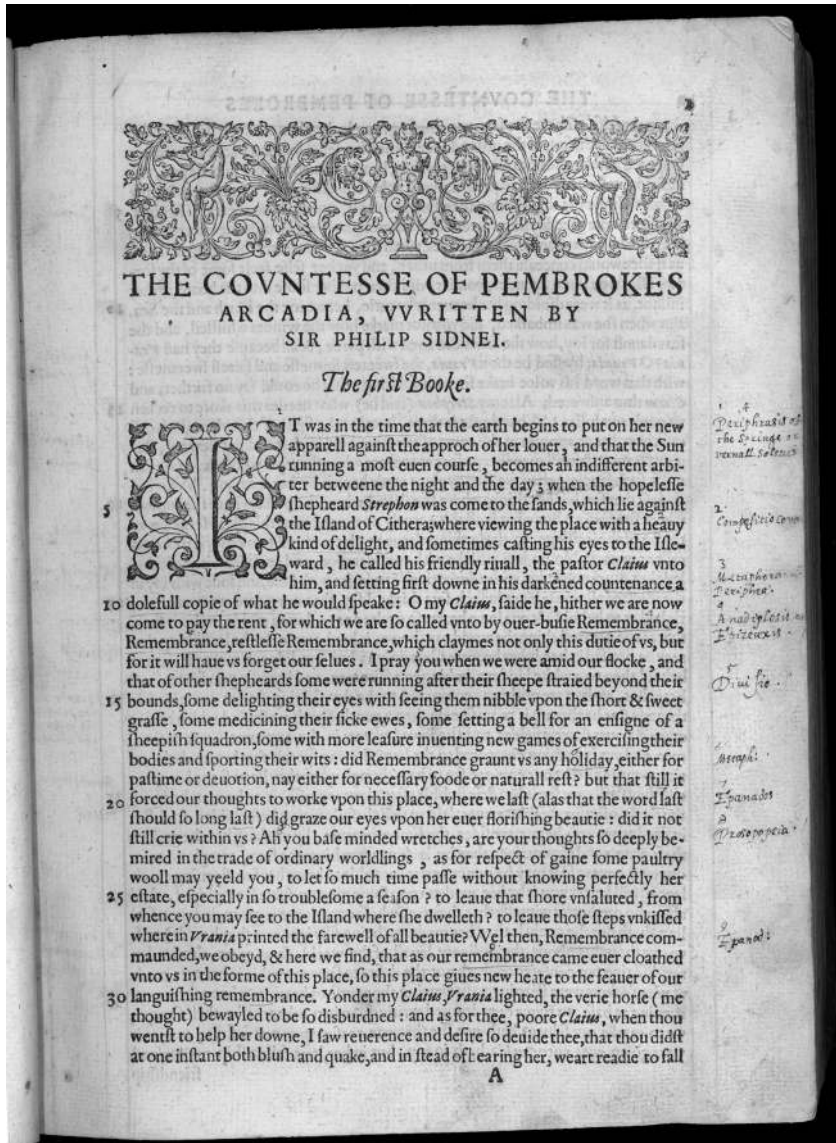 THE COVNTESSE OF PEMBROKES
ARCADIA, VVRITTEN BY
SIR PHILIP SIDNEI.
The firſt Booke.
IT was in the time that the earth begins to put on her new
apparell againſt the approch of her louer, and that the Sun
running a moſt euen courſe, becomes an indifferent arbi-
ter betweene the night and the day; when the hopeleſſe
5 ſhepheard Strephon was come to the ſands, which lie againſt
the Iſland of Cithera; where viewing the place with a heauy
kind of delight, and ſometimes caſting his eyes to the Iſle-
ward, he called his friendly riuall, the paſtor Claius vnto
him, and ſetting firſt downe in his darkened countenance a
10 dolefull copie of what he would ſpeake: O my Claius, ſaide he, hither we are now
come to pay the rent, for which we are ſo called vnto by ouer-buſie Remembrance,
Remembrance, reſtleſſe Remembrance, which claymes not only this dutie of vs, but
for it will haue vs forget our ſelues. I pray you when we were amid our flocke, and
that of other ſhepheards ſome were running after their ſheepe ſtraied beyond their
15 bounds, ſome delighting their eyes with ſeeing them nibble vpon the ſhort & ſweet
graſſe, ſome medicining their ſicke ewes, ſome ſetting a bell for an enſigne of a
ſheepiſh ſquadron, ſome with more leaſure inuenting new games of exerciſing their
bodies and ſporting their wits: did Remembrance graunt vs any holiday, either for
paſtime or deuotion, nay either for neceſſary foode or naturall reſt? but that ſtill it
20 forced our thoughts to worke vpon this place, where we laſt (alas that the word laſt
ſhould ſo long laſt) did graze our eyes vpon her euer floriſhing beautie: did it not
ſtill crie within vs? Ah you baſe minded wretches, are your thoughts ſo deeply be-
mired in the trade of ordinary worldlings, as for reſpect of gaine ſome paultry
wooll may yeeld you, to let ſo much time paſſe without knowing perfectly her
25 eſtate, eſpecially in ſo troubleſome a ſeaſon? to leaue that ſhore vnſaluted, from
whence you may ſee to the Iſland where ſhe dwelleth? to leaue thoſe ſteps vnkiſſed
wherein Vrania printed the farewell of all beautie? Wel then, Remembrance com-
maunded, we obeyd, & here we find, that as our remembrance came euer cloathed
vnto vs in the forme of this place, ſo this place giues new heate to the feauer of our
30 languiſhing remembrance. Yonder my Claius, Vrania lighted, the verie horſe (me
thought) bewayled to be ſo disburdned: and as for thee, poore Claius, when thou
wentſt to help her downe, I ſaw reuerence and deſire ſo deuide thee, that thou didſt
at one inſtant both bluſh and quake, and in ſtead of bearing her, weart readie to fall
A
1
Periphrasis of
the Springe
vernall
2
Compositio
3
Metaphora
Periphra:
4
Anadiplosis
Epizeuxis
5
Diuisio.
Metaph:
7
Epanados
8
Prosopopeia
9
Epanod: